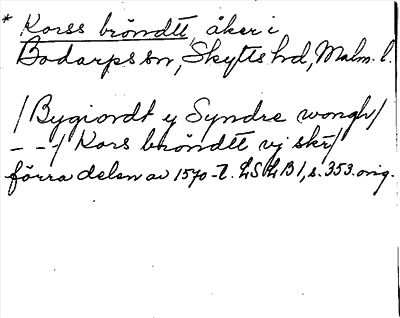 * Korss bröndtt, åker i
Bodarps sn, Skytts hd, Malm. l.
/Bygiordt y Syndre wongh/
- - / Kors bröndtt vj skr/
förra delen av 1570-t. LSLB1, s. 353. orig.